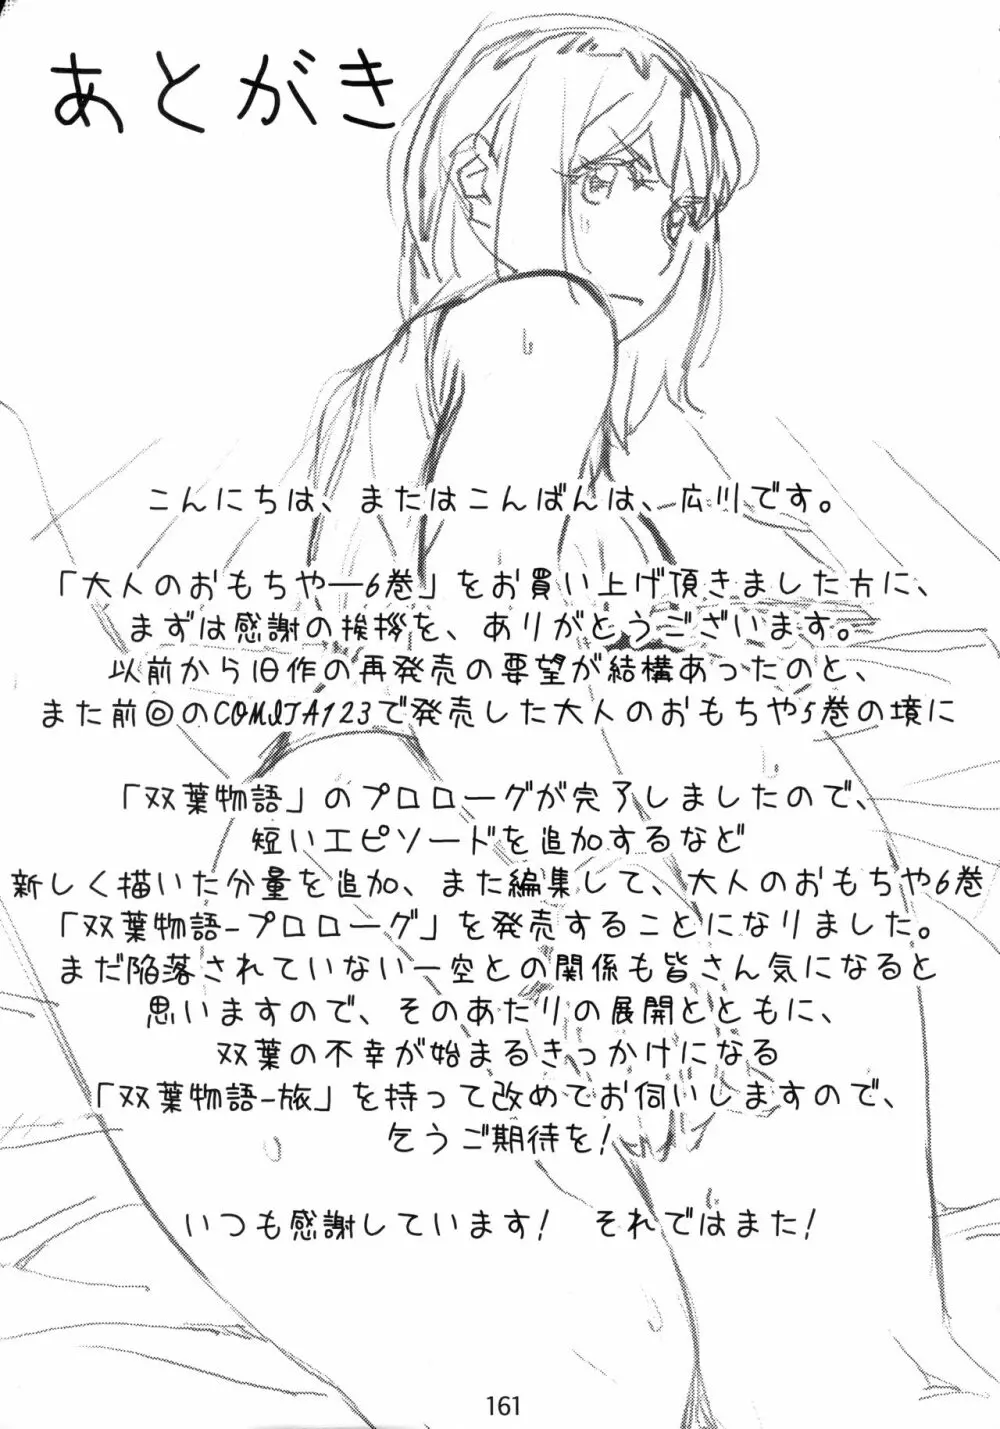 あとがき
こんにちは、またはこんばんは、広川です。
「大人のおもちや―6巻」をお買い上げ頂きました方に、
まずは感謝の挨拶を、ありがとうございます。
以前から旧作の再発売の要望が結構あったのと、
また前◎のCOMITIA123で発売した大人のおもちや5巻の境に
「双葉物語」のプロローグが完了しましたので、
短いエピソードを追加するなど
新しく描いた分量を追加、また編集して、大人のおもちや6巻
「双葉物語-プロローグ」を発売することになりました。
まだ陥落されていない一空との関係も皆さん気になると
思いますので、そのあたりの展開とともに、
双葉の不幸が始まるきっかけになる
「双葉物語-旅」を持って改めてお伺いしますので、
乞うご期待を!
いつも感謝しています! それではまた!
161